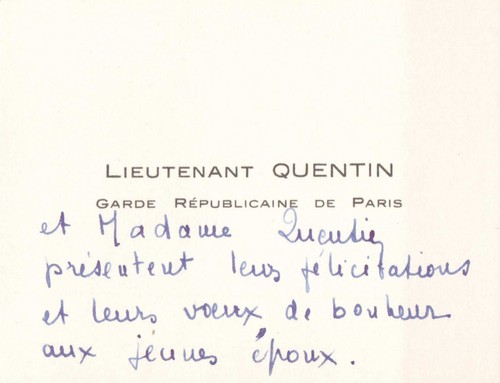 LIEUTENANT QUENTIN
GARDE RÉPUBLICAINE DE PARIS
et Madame Quentin
présentent leurs félicitations
et leurs vœux de bonheur
aux jeunes époux.